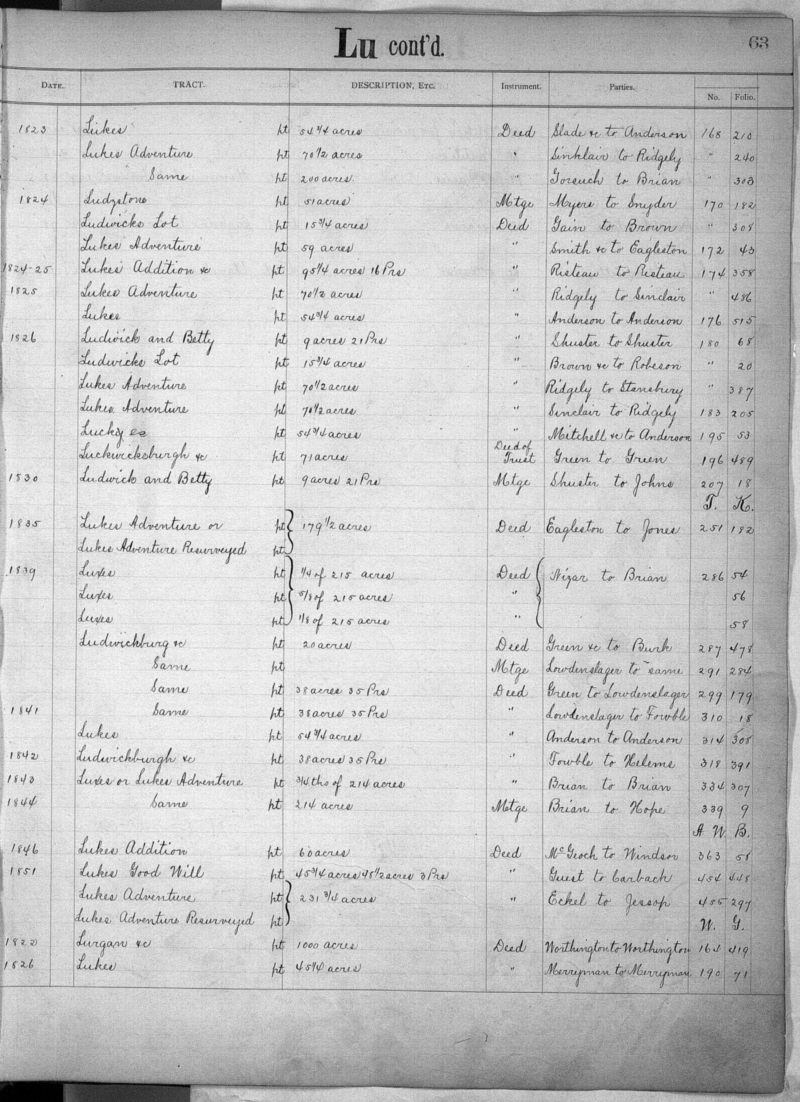 Lu cont'd.
63
DATE. TRACT. DESCRIPTION, ETC. Instrument. Parties. No. Folio.
1823 Lukes pt 54 3/4 acres Deed Slade &c to Anderson 168 210
Lukes Adventure pt 70 1/2 acres " Sinklair to Ridgely " 240
Same pt 200 acres " Gorsuch to Brian " 303
1824 Ludystone pt 51 acres Mtge Myers to Snyder 170 182
Ludwicks Lot pt 15 3/4 acres Deed Gain to Brown " 308
Lukes Adventure pt 59 acres " Smith &c to Eagleston 172 43
1824-25 Lukes Addition &c pt 95 1/4 acres 16 Prs " Risteau to Risteau 174 358
1825 Lukes Adventure pt 70 1/2 acres " Ridgely to Sinclair " 486
Lukes pt 54 3/4 acres " Anderson to Anderson 176 515
1826 Ludwick and Betty pt 9 acres 21 Prs " Shuster to Shuster 180 68
Ludwicks Lot pt 15 3/4 acres " Brown &c to Robeson " 20
Lukes Adventure pt 70 1/2 acres " Ridgely to Stansbury " 387
Lukes Adventure pt 70 1/2 acres " Sinclair to Ridgely 183 205
pt 54 3/4 acres " Mitchell &c to Anderson 195 53
Luckwicksburgh &c pt 71 acres Deed of Trust Green to Green 196 489
1830 Ludwick and Betty pt 9 acres 21 Prs Mtge Shuster to Johns 207 18
T. K.
1835 Lukes Adventure or pt 179 1/2 acres Deed Eagleston to Jones 251 182
Lukes Adventure Resurveyed pt
1839 Luxes pt 1/4 of 215 acres Deed Nizar to Brian 286 54
Luxes pt 5/8 of 215 acres " 56
Luxes pt 1/8 of 215 acres " 58
Ludwickburg &c pt 20 acres Deed Green &c to Burk 287 478
Same pt Mtge Lowdenslager to same 291 284
Same pt 38 acres 35 Prs Deed Green to Lowdenslager 299 179
1841 Same pt 38 acres 35 Prs " Lowdenslager to Fowble 310 18
Lukes pt 54 3/4 acres " Anderson to Anderson 314 308
1842 Ludwickburgh &c pt 38 acres 35 Prs " Fowble to Helems 318 391
1843 Luxes or Lukes Adventure pt 3/4 ths of 214 acres " Brian to Brian 334 307
1844 Same pt 214 acres Mtge Brian to Hope 339 9
A. W. B.
1846 Lukes Addition pt 60 acres Deed McGeoch to Windsor 363 51
1851 Lukes Good Will pt 45 3/4 acres 45 1/2 acres 3 Prs " Guest to Carback 454 448
Lukes Adventure pt 231 3/4 acres " Eckel to Jessop 455 297
Lukes Adventure Resurveyed pt
W. G.
1822 Lurgan &c pt 1000 acres Deed Worthington to Worthington 164 419
1826 Lukes pt 45 1/4 acres " Merryman to Merryman 190 71